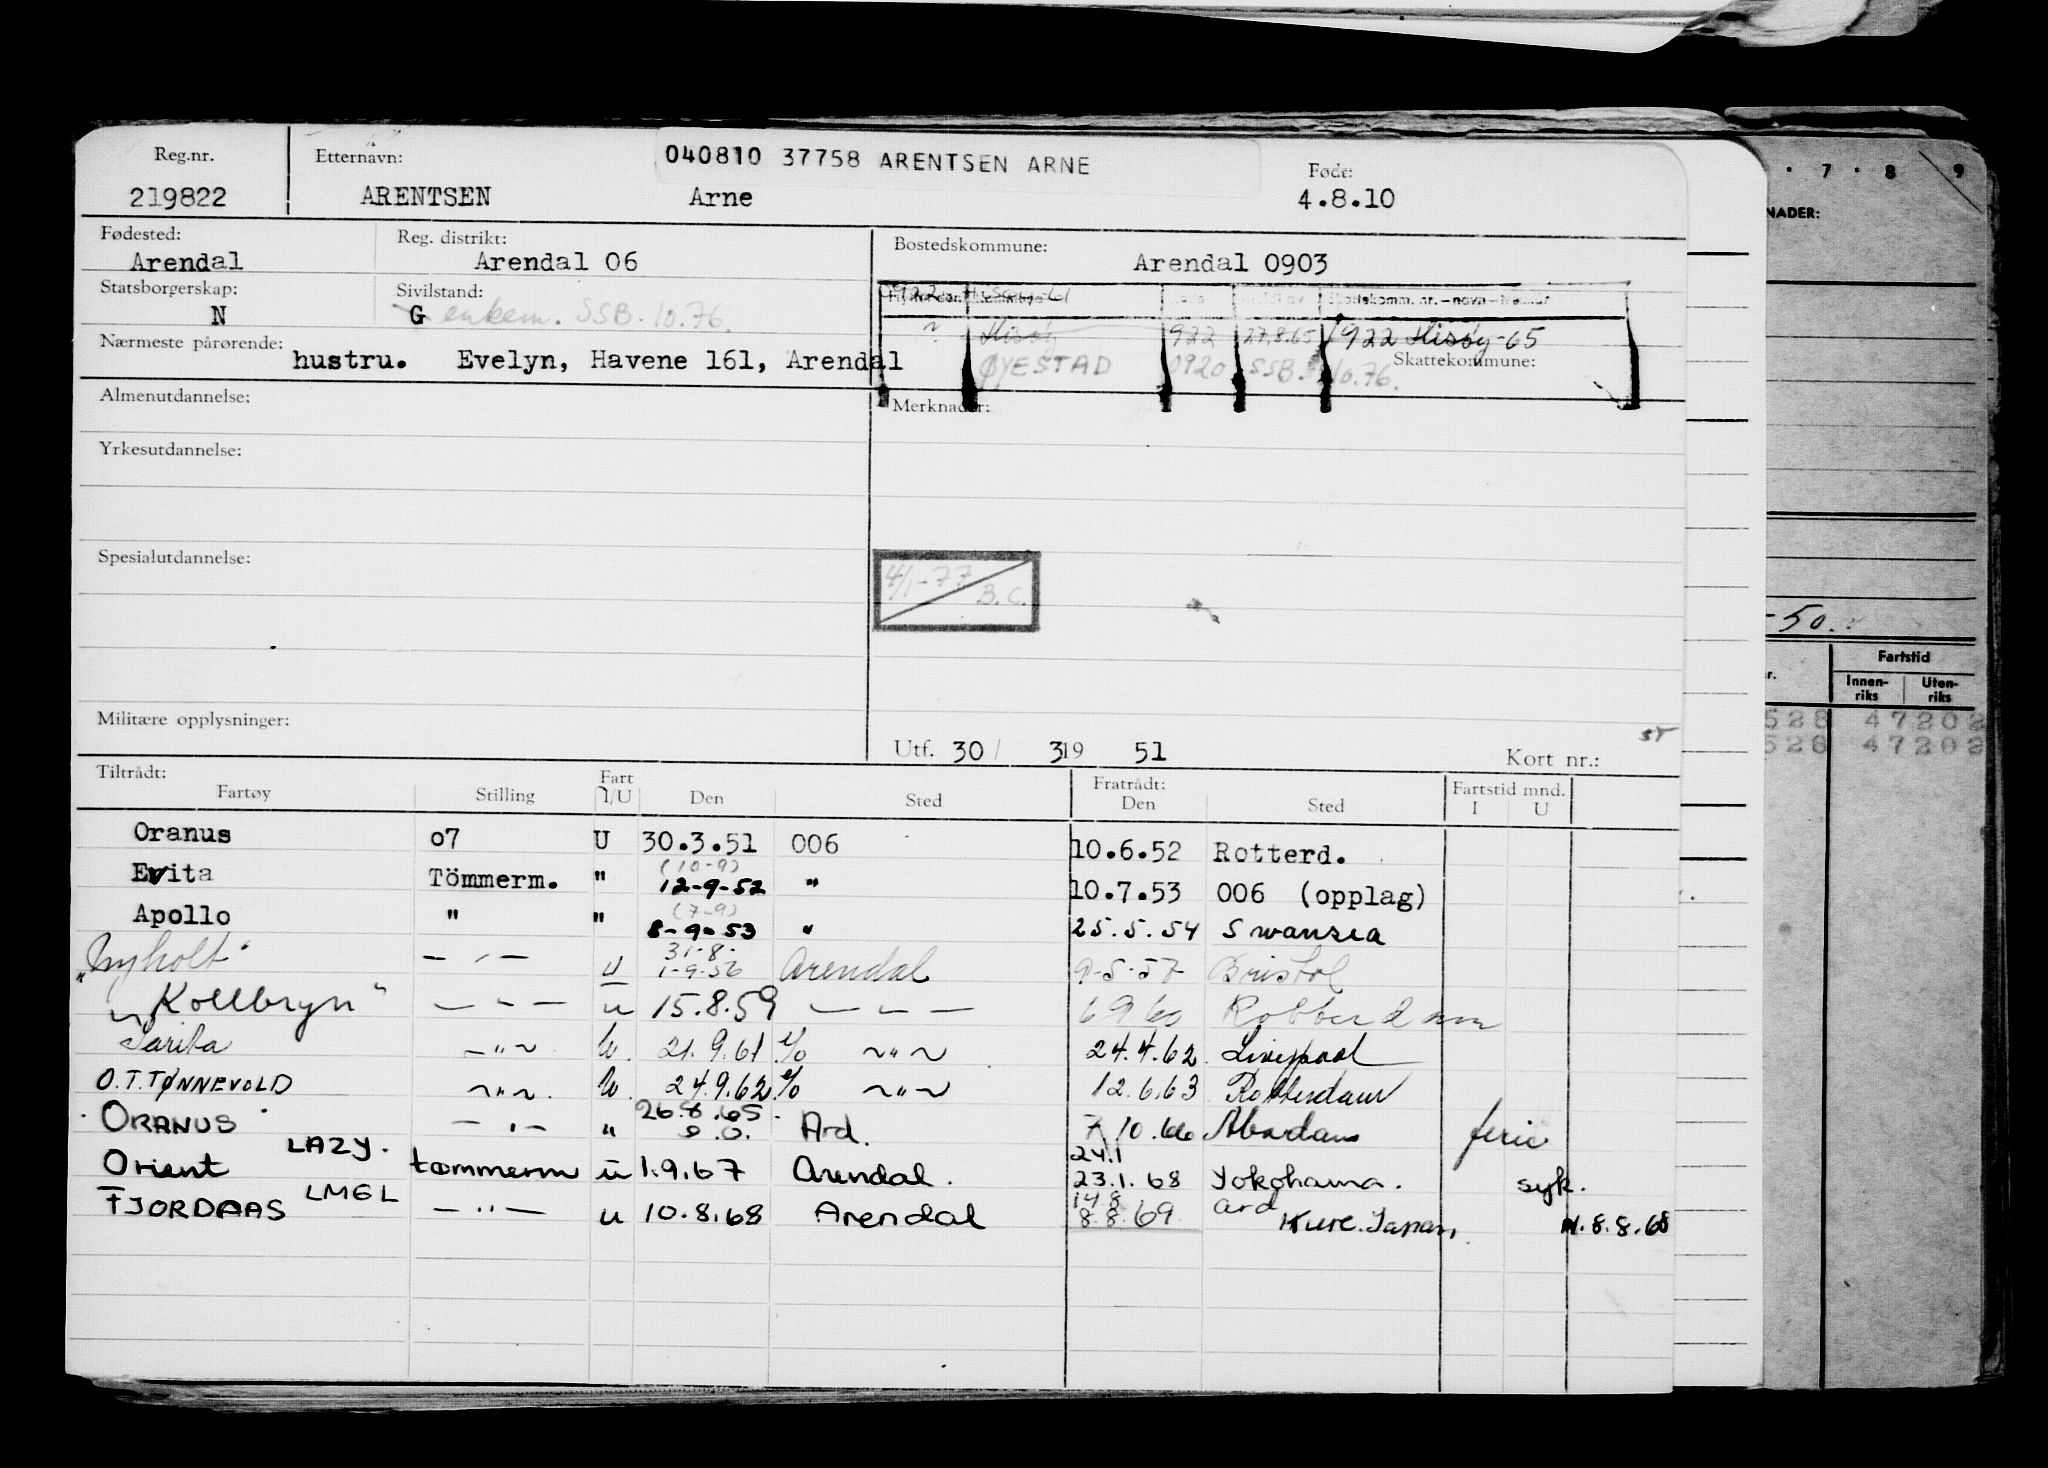 040810 37758 ARENTSEN ARNE
Reg.nr. Etternavn: Født:
219822 ARENTSEN Arne 4.8.10
Fødested: Reg. distrikt: Bostedskommune:
Arendal Arendal 06 Arendal 0903
Statsborgerskap: Sivilstand:
N G enkem. SSB. 10.76.
Hisøy 922 27.8.65 922 Hisøy-65
Nærmeste pårørende: Skattekommune:
hustru. Evelyn, Havene 161, Arendal
ØYESTAD 0920 SSB. 10.76.
Almenutdannelse: Merknader:
Yrkesutdannelse:
Spesialutdannelse:
4/1-77 B.C.
Militære opplysninger:
Utf. 30/ 319 51 Kort nr.:
Tiltrådt: Fart Fratrådt: Fartstid mnd.
Fartøy Stilling I/U Den Sted Den Sted I U
Oranus 07 U 30.3.51 006 10.6.52 Rotterd.
(10-9)
Evita Tömmerm. " 12-9-52 " 10.7.53 006 (opplag)
(7-9)
Apollo " " 8-9-53 " 25.5.54 Swansea
31-8-
"Nyholt" — " — U 1-9-56 Arendal 9-5-57 Bristol
"Kollbryn" — " — u 15.8.59 — " — 6 9 60 Rotterdam
Sarita — " — U. 21.9.61 — " — 24.4.62 Liverpool
O.T.TØNNEVOLD — " — U. 24.9.62 — " — 12.6.63 Rotterdam
ORANUS — " — " 26.8.65 Ard. 7/10.66 Abadan ferie
LAZY. 24.1
Orient tømmerm u 1.9.67 Arendal. 23.1.68 Yokohama. syk.
LMGL 14.8 Ard
FJORDAAS — " — u 10.8.68 Arendal 8.8.69 Kure. Japan. 8.8.68
7 . 8 9
NADER:
-50.
Fartstid
Innen-riks Uten-riks
528 47202
528 47202